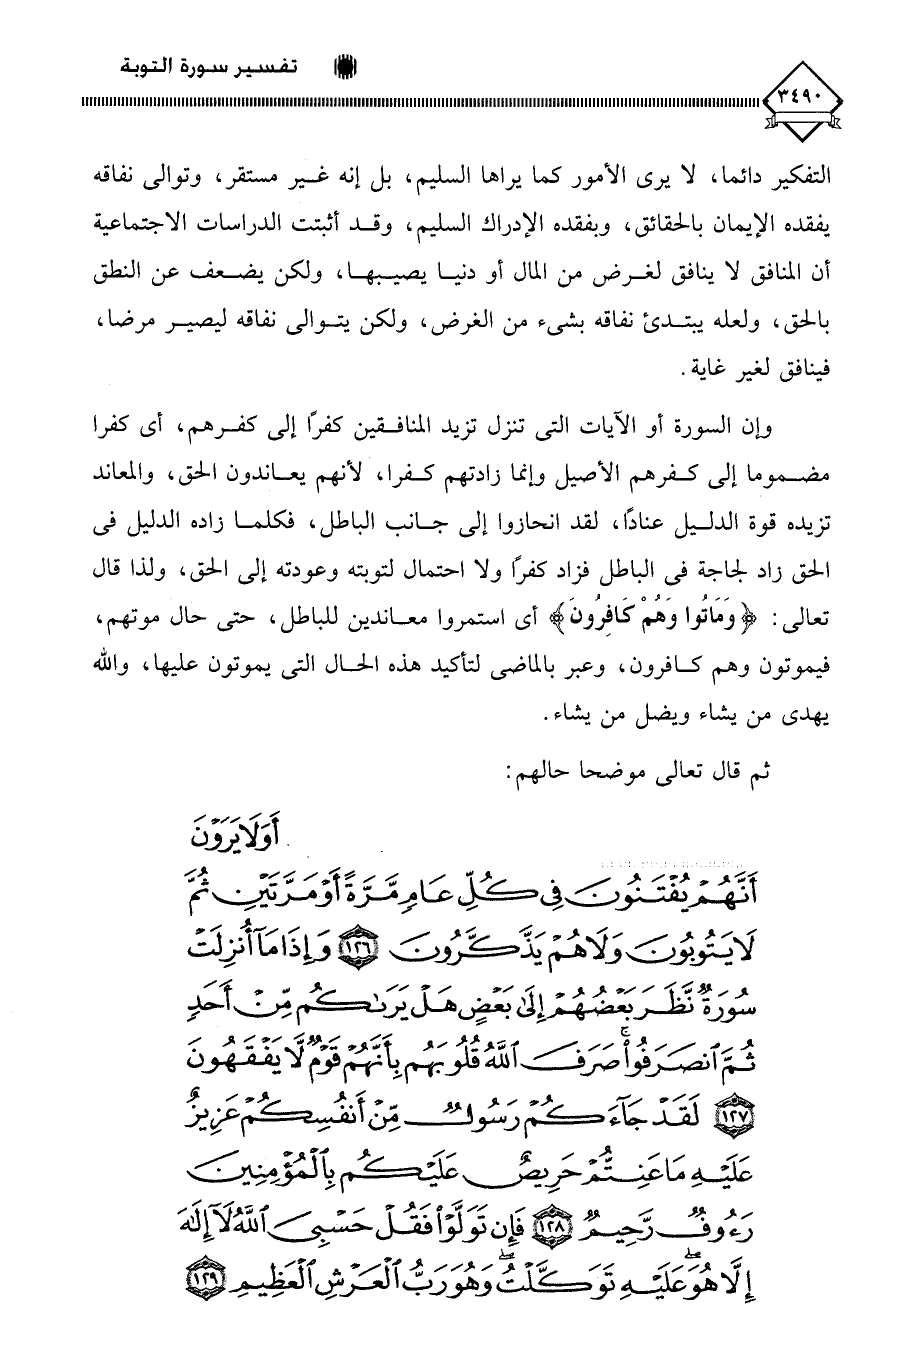 تفسير سورة التوبة
٣٤٩٠
التفكير دائما، لا يرى الأمور كما يراها السليم، بل إنه غير مستقر، وتوالى نفاقه
يفقده الإيمان بالحقائق، وبفقده الإدراك السليم، وقد أثبتت الدراسات الاجتماعية
أن المنافق لا ينافق لغرض من المال أو دنيا يصيبها، ولكن يضعف عن النطق
بالحق، ولعله يبتدئ نفاقه بشىء من الغرض، ولكن يتوالى نفاقه ليصير مرضا،
فينافق لغير غاية.
وإن السورة أو الآيات التى تنزل تزيد المنافقين كفرًا إلى كفرهم، أى كفرا
مضموما إلى كفرهم الأصيل وإنما زادتهم كفرا، لأنهم يعاندون الحق، والمعاند
تزيده قوة الدليل عنادًا، لقد انحازوا إلى جانب الباطل، فكلما زاده الدليل فى
الحق زاد لجاجة فى الباطل فزاد كفرًا ولا احتمال لتوبته وعودته إلى الحق، ولذا قال
تعالى: ﴿وَمَاتُوا وَهُمْ كَافِرُونَ﴾ أى استمروا معاندين للباطل، حتى حال موتهم،
فيموتون وهم كافرون، وعبر بالماضى لتأكيد هذه الحال التى يموتون عليها، والله
يهدى من يشاء ويضل من يشاء.
ثم قال تعالى موضحا حالهم:
أَوَلَا يَرَوْنَ
أَنَّهُمْ يُفْتَنُونَ فِي كُلِّ عَامٍ مَّرَّةً أَوْ مَرَّتَيْنِ ثُمَّ
لَا يَتُوبُونَ وَلَا هُمْ يَذَّكَّرُونَ ١٢٦ وَإِذَا مَا أُنزِلَتْ
سُورَةٌ نَّظَرَ بَعْضُهُمْ إِلَىٰ بَعْضٍ هَلْ يَرَىٰكُم مِّنْ أَحَدٍ
ثُمَّ ٱنصَرَفُوا۟ ۚ صَرَفَ ٱللَّهُ قُلُوبَهُم بِأَنَّهُمْ قَوْمٌ لَّا يَفْقَهُونَ
١٢٧ لَقَدْ جَآءَكُمْ رَسُولٌ مِّنْ أَنفُسِكُمْ عَزِيزٌ
عَلَيْهِ مَا عَنِتُّمْ حَرِيصٌ عَلَيْكُم بِٱلْمُؤْمِنِينَ
رَءُوفٌ رَّحِيمٌ ١٢٨ فَإِن تَوَلَّوْا۟ فَقُلْ حَسْبِيَ ٱللَّهُ لَآ إِلَٰهَ
إِلَّا هُوَ ۖ عَلَيْهِ تَوَكَّلْتُ ۖ وَهُوَ رَبُّ ٱلْعَرْشِ ٱلْعَظِيمِ ١٢٩